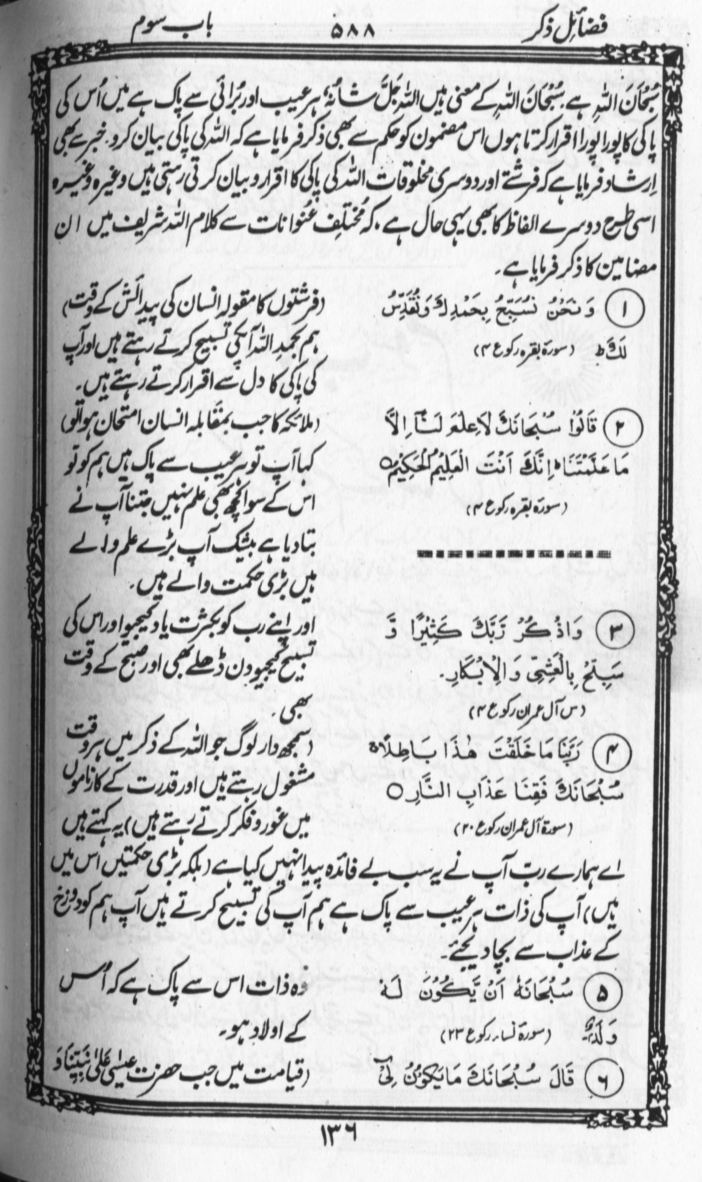 فضائل ذکر ۵۸۸ باب سوم
سُبْحَانَ اللہِ ہے۔ سُبْحَانَ اللہِ کے معنی ہیں اللہ جَلَّ شَانُہٗ ہر عیب اور بُرائی سے پاک ہے میں اُس کی
پاکی کا پورا پورا اقرار کرتا ہوں اس مضمون کو حکم سے بھی ذکر فرمایا ہے کہ اللہ کی پاکی بیان کرو۔ خبر سے بھی
ارشاد فرمایا ہے کہ فرشتے اور دوسری مخلوقات اللہ کی پاکی کا اقرار و بیان کرتی رہتی ہیں وغیرہ وغیرہ
اسی طرح دوسرے الفاظ کا بھی یہی حال ہے۔ کہ مختلف عنوانات سے کلام اللہ شریف میں ان
مضامین کا ذکر فرمایا ہے۔
① وَنَحْنُ نُسَبِّحُ بِحَمْدِكَ وَنُقَدِّسُ
لَكَ ط (سورۃ بقرہ رکوع ۴)
(فرشتوں کا مقولہ انسان کی پیدائش کے وقت)
ہم بحمد اللہ آپ کی تسبیح کرتے رہتے ہیں اور آپ
کی پاکی کا دل سے اقرار کرتے رہتے ہیں۔
② قَالُوْا سُبْحَانَكَ لَاعِلْمَ لَنَآ اِلَّا
مَا عَلَّمْتَنَا ط اِنَّكَ اَنْتَ الْعَلِيْمُ الْحَكِيْمُ ○
(سورۃ بقرہ رکوع ۴)
(ملائکہ کا جب بمقابلہ انسان امتحان ہوا تو)
کہا آپ تو ہر عیب سے پاک ہیں ہم کو تو
اس کے سوا کچھ بھی علم نہیں جتنا آپ نے
بتا دیا ہے بیشک آپ بڑے علم والے
ہیں بڑی حکمت والے ہیں۔
③ وَاذْكُرْ رَّبَّكَ كَثِيْرًا وَّ
سَبِّحْ بِالْعَشِيِّ وَالْاِبْكَارِ۔
(س آل عمران رکوع ۴)
اور اپنے رب کو بکثرت یاد کیجیو اور اس کی
تسبیح کیجیو دن ڈھلے بھی اور صبح کے وقت
بھی۔
④ رَبَّنَا مَا خَلَقْتَ هٰذَا بَاطِلًا ج
سُبْحَانَكَ فَقِنَا عَذَابَ النَّارِ ○
(سورۃ آل عمران رکوع ۲۰)
(سمجھدار لوگ جو اللہ کے ذکر میں ہر وقت
مشغول رہتے ہیں اور قدرت کے کارناموں
میں غور و فکر کرتے رہتے ہیں) یہ کہتے ہیں
اے ہمارے ربّ آپ نے یہ سب بے فائدہ پیدا نہیں کیا ہے (بلکہ بڑی حکمتیں اس میں
ہیں) آپ کی ذات ہر عیب سے پاک ہے ہم آپ کی تسبیح کرتے ہیں آپ ہم کو دوزخ
کے عذاب سے بچا دیجئے۔
⑤ سُبْحَانَهٗ اَنْ يَّكُوْنَ لَهٗ
وَلَدٌ (سورۃ نساء رکوع ۲۳)
وہ ذات اس سے پاک ہے کہ اُس
کے اولاد ہو۔
⑥ قَالَ سُبْحَانَكَ مَا يَكُوْنُ لِيْٓ
(قیامت میں جب حضرت عیسٰی عَلٰی نَبِیِّنَا وَ
۱۳۶